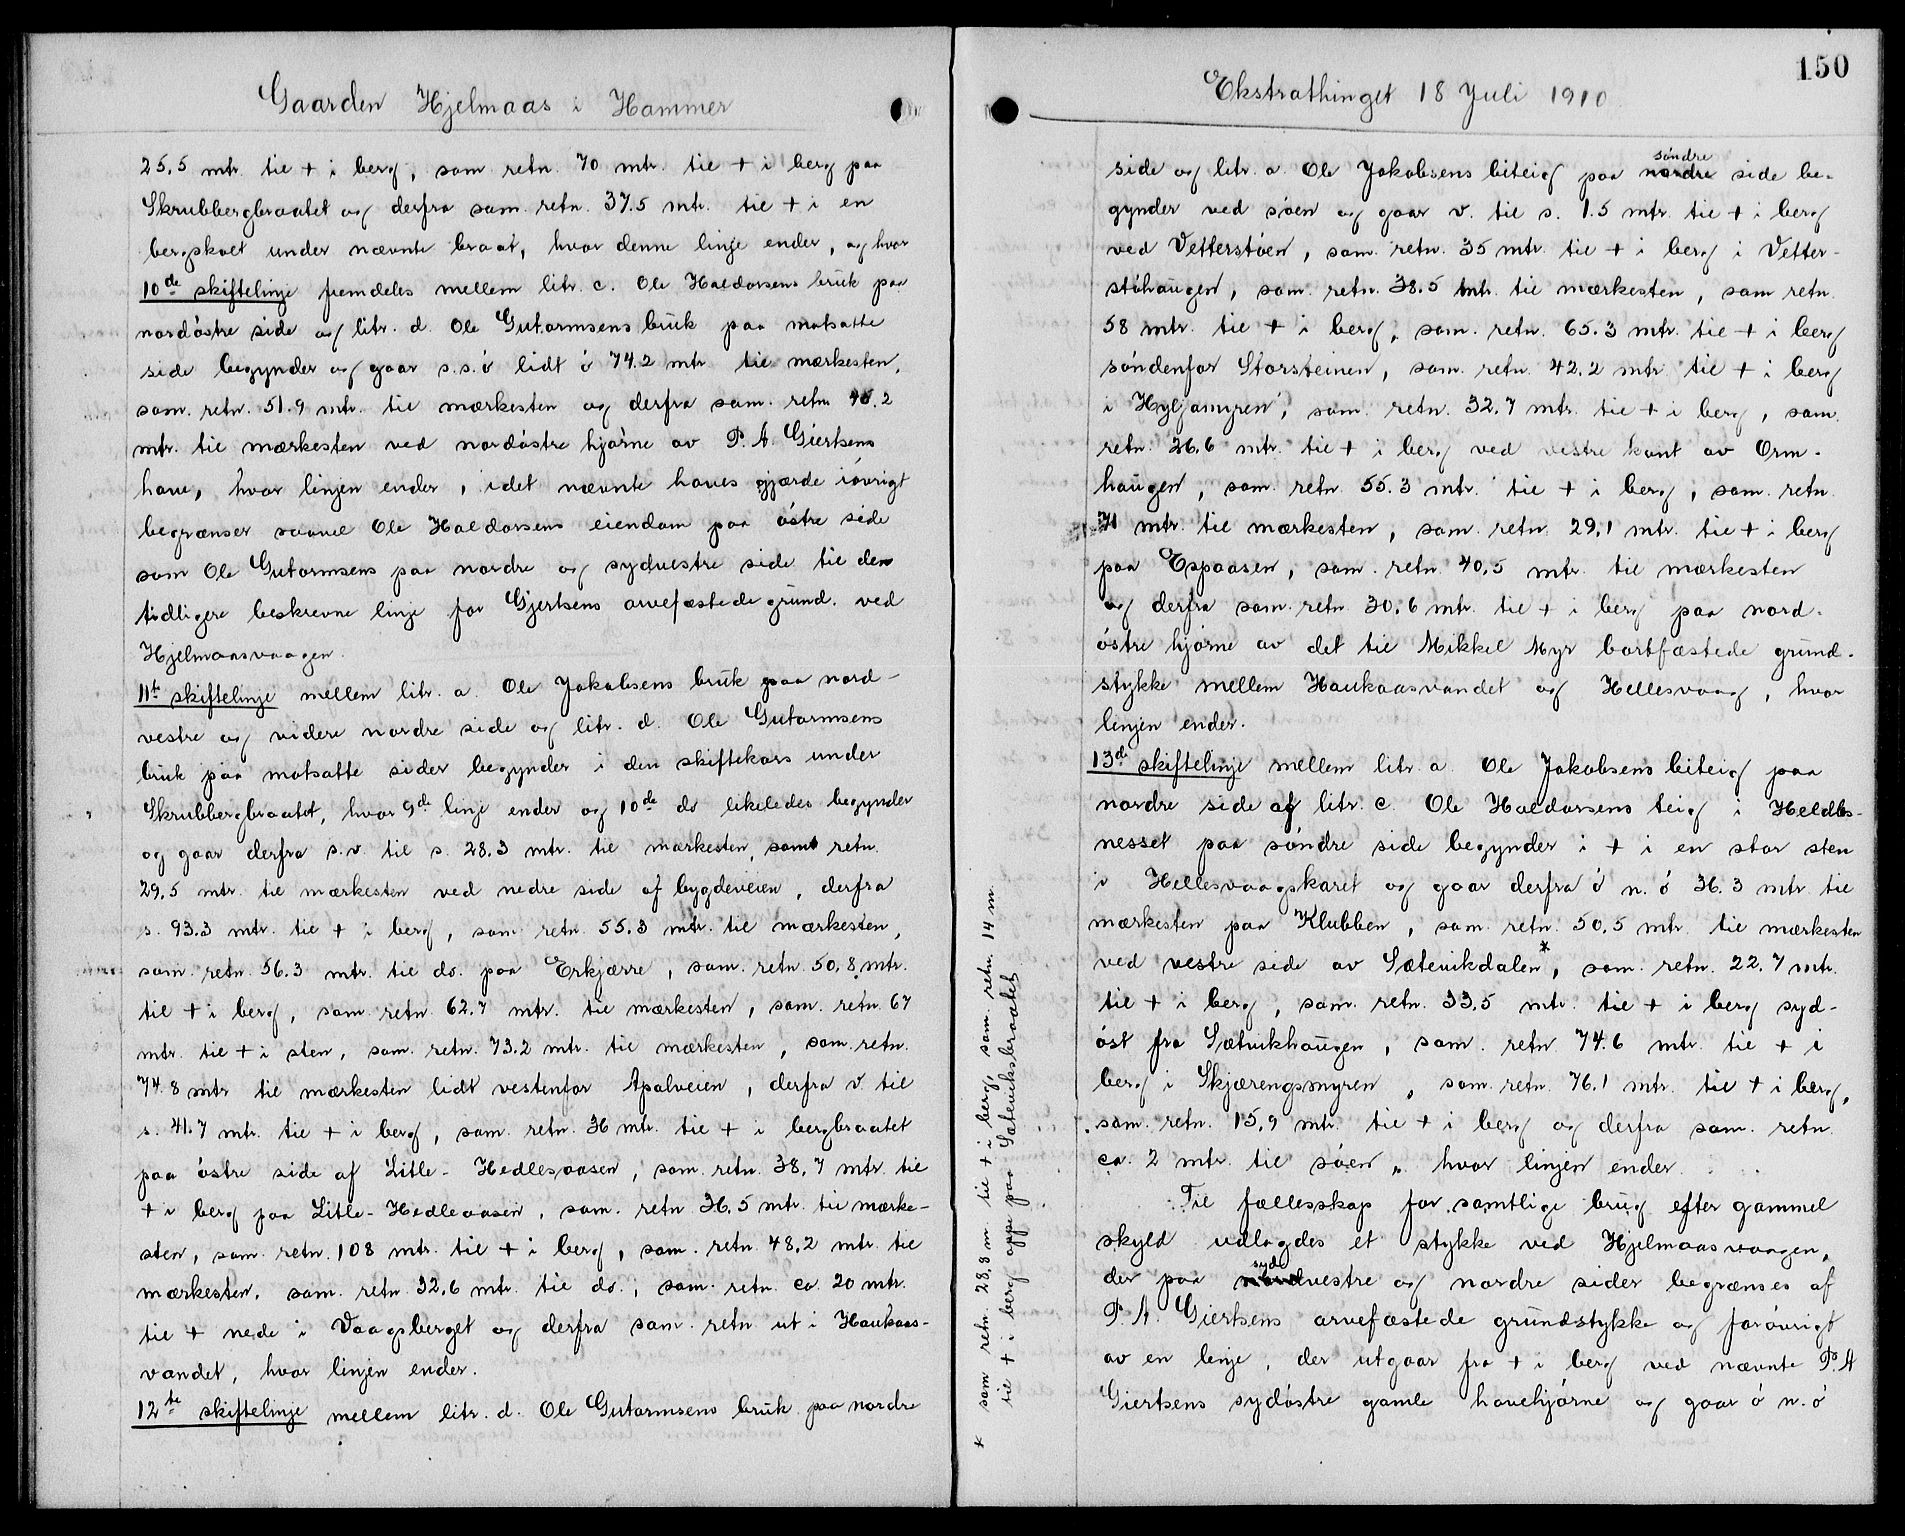 Gaarden Hjelmaas i Hammer
25,5 mtr. til + i berg, sam. retn. 70 mtr. til + i berg paa
Skrubbergbraatet og derfra sam. retn. 37.5 mtr. til + i en
bergskolt under nævnte braat, hvor denne linje ender, og hvor
10de skiftelinje fremdeles mellem litr. c. Ole Haldorsens bruk paa
nordöstre side og litr. d. Ole Gutormsens bruk paa motsatte
side begynder og gaar s.s.ö lidt ö 74.2 mtr til mærkesten,
sam. retn. 51.9 mtr. til mærkesten og derfra sam. retn.
mtr. til mærkesten ved nordöstre hjörne av P. A. Giertsens
have, hvor linjen ender, idet nævnte haves gjærde iövrigt
begrænser saavel Ole Haldorsens eiendom paa östre side
som Ole Gutormsens paa nordre og sydvestre side til den
tidligere beskrevne linje for Gjertsens arvefæstede grund. ved
Hjelmaasvaagen.
11te skiftelinje mellem litr. a. Ole Jakobsens bruk paa nord-
vestre og videre nordre side og litr. d. Ole Gutormsens
bruk paa motsatte sider begynder i den skiftekors under
Skrubbergbraatet, hvor 9de linje ender og 10de do likeledes begynder
og gaar derfra s.v. til s. 28.3 mtr. til mærkesten, samt retn.
29,5 mtr. til mærkesten ved nedre side af bygdeveien, derfra
s. 93.3 mtr. til + i berg, sam retn. 55.3 mtr. til mærkesten,
sam. retn. 56.3 mtr. til do. paa Erkjærre, sam. retn. 50,8 mtr.
til + i berg, sam. retn. 62.7 mtr. til mærkesten, sam. retn. 67
mtr. til + i sten, sam. retn. 73.2 mtr. til mærkesten, sam. retn.
74.8 mtr til mærkesten lidt vestenfor Apalveien, derfra v. til
s. 41.7 mtr. til + i berg, sam. retn. 36 mtr. til + i bergbraatet
paa östre side af Litle-Hedlesaasen, sam. retn. 38,7 mtr. til
+ i berg paa Litle-Hedleaasen, sam. retn 36,5 mtr. til mærke-
sten, sam. retn. 108 mtr. til + i berg, sam. retn. 48,2 mtr. til
mærkesten, sam. retn. 32,6 mtr. til do., sam. retn. ca. 20 mtr.
til + nede i Vaagsberget og derfra sam. retn. ut i Haukaas-
vandet, hvor linjen ender.
12te skiftelinje mellem litr. d. Ole Gutormsens bruk paa nordre
Ekstrathinget 18 Juli 1910
150
söndre
side og litr. a. Ole Jakobsens biteig paa nordre side be-
gynder ved söen og gaar v. til s. 1.5 mtr. til + i berg
ved Vetterstöen, sam. retn. 35 mtr. til + i berg i Vetter-
stöhaugen, sam. retn. 38.5 mtr. til mærkesten, sam retn.
58 mtr. til + i berg, sam. retn. 65.3 mtr. til + i berg
söndenfor Storsteinen, sam. retn. 42.2 mtr. til + i berg
i Hyljamyren, sam. retn. 32.7 mtr. til + i berg, sam.
retn. 26.6 mtr. til + i berg ved vestre kant av Orm-
haugen, sam. retn. 55.3 mtr. til + i berg, sam. retn.
71 mtr. til mærkesten, sam. retn. 29,1 mtr. til + i berg
paa Espaasen, sam. retn. 40,5 mtr. til mærkesten
og derfra sam. retn. 30,6 mtr. til + i berg paa nord-
östre hjörne av det til Mikkel Myr bortfæstede grund-
stykke mellem Haukaasvandet og Hellesvaag, hvor
linjen ender.
13de skiftelinje mellem litr. a. Ole Jakobsens biteig paa
nordre side af litr. c. Ole Haldorsens teig i Heldles-
nesset paa söndre side begynder i + i en stor sten
i Hellesvaagskaret og gaar derfra ö n. ö 36.3 mtr. til
mærkesten paa Klubben, sam. retn. 50,5 mtr. til mærkesten
ved vestre side av Sætevikdalen*, sam. retn. 22.7 mtr.
til + i berg, sam. retn. 33,5 mtr. til + i berg syd-
öst fra Sætvikhaugen, sam. retn. 74.6 mtr. til + i
berg i Skjærengsmyren, sam. retn. 76.1 mtr. til + i berg,
sam. retn. 15,9 mtr. til + i berg og derfra sam. retn.
ca. 2 mtr. til söen, hvor linjen ender.
Til fællesskap for samtlige brug efter gammel
skyld udlagdes et stykke ved Hjelmaasvaagen,
syd
der paa nordvestre og nordre sider begrænses af
P. A. Giertsens arvefæstede grundstykke og forövrigt
av en linje, der utgaar fra + i berg ved nævnte P. A
Giertsens sydöstre gamle havehjörne og gaar ö n. ö
* sam retn. 28,8 m til + i berg, sam. retn. 14 m.
til + i berg oppe paa Sæteviksbraatet